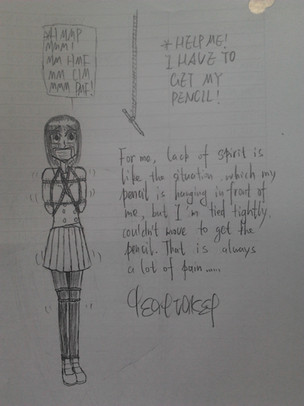 *HMMP
MMM!
MM HMF
MM
MMM PMF!
*HELP ME!
I HAVE TO
GET MY
PENCIL!
For me, lack of spirit is
like the situation which my
pencil is hanging in front of
me, but I'm tied tightly,
couldn't move to get the
pencil. That is always
a lot of pain......